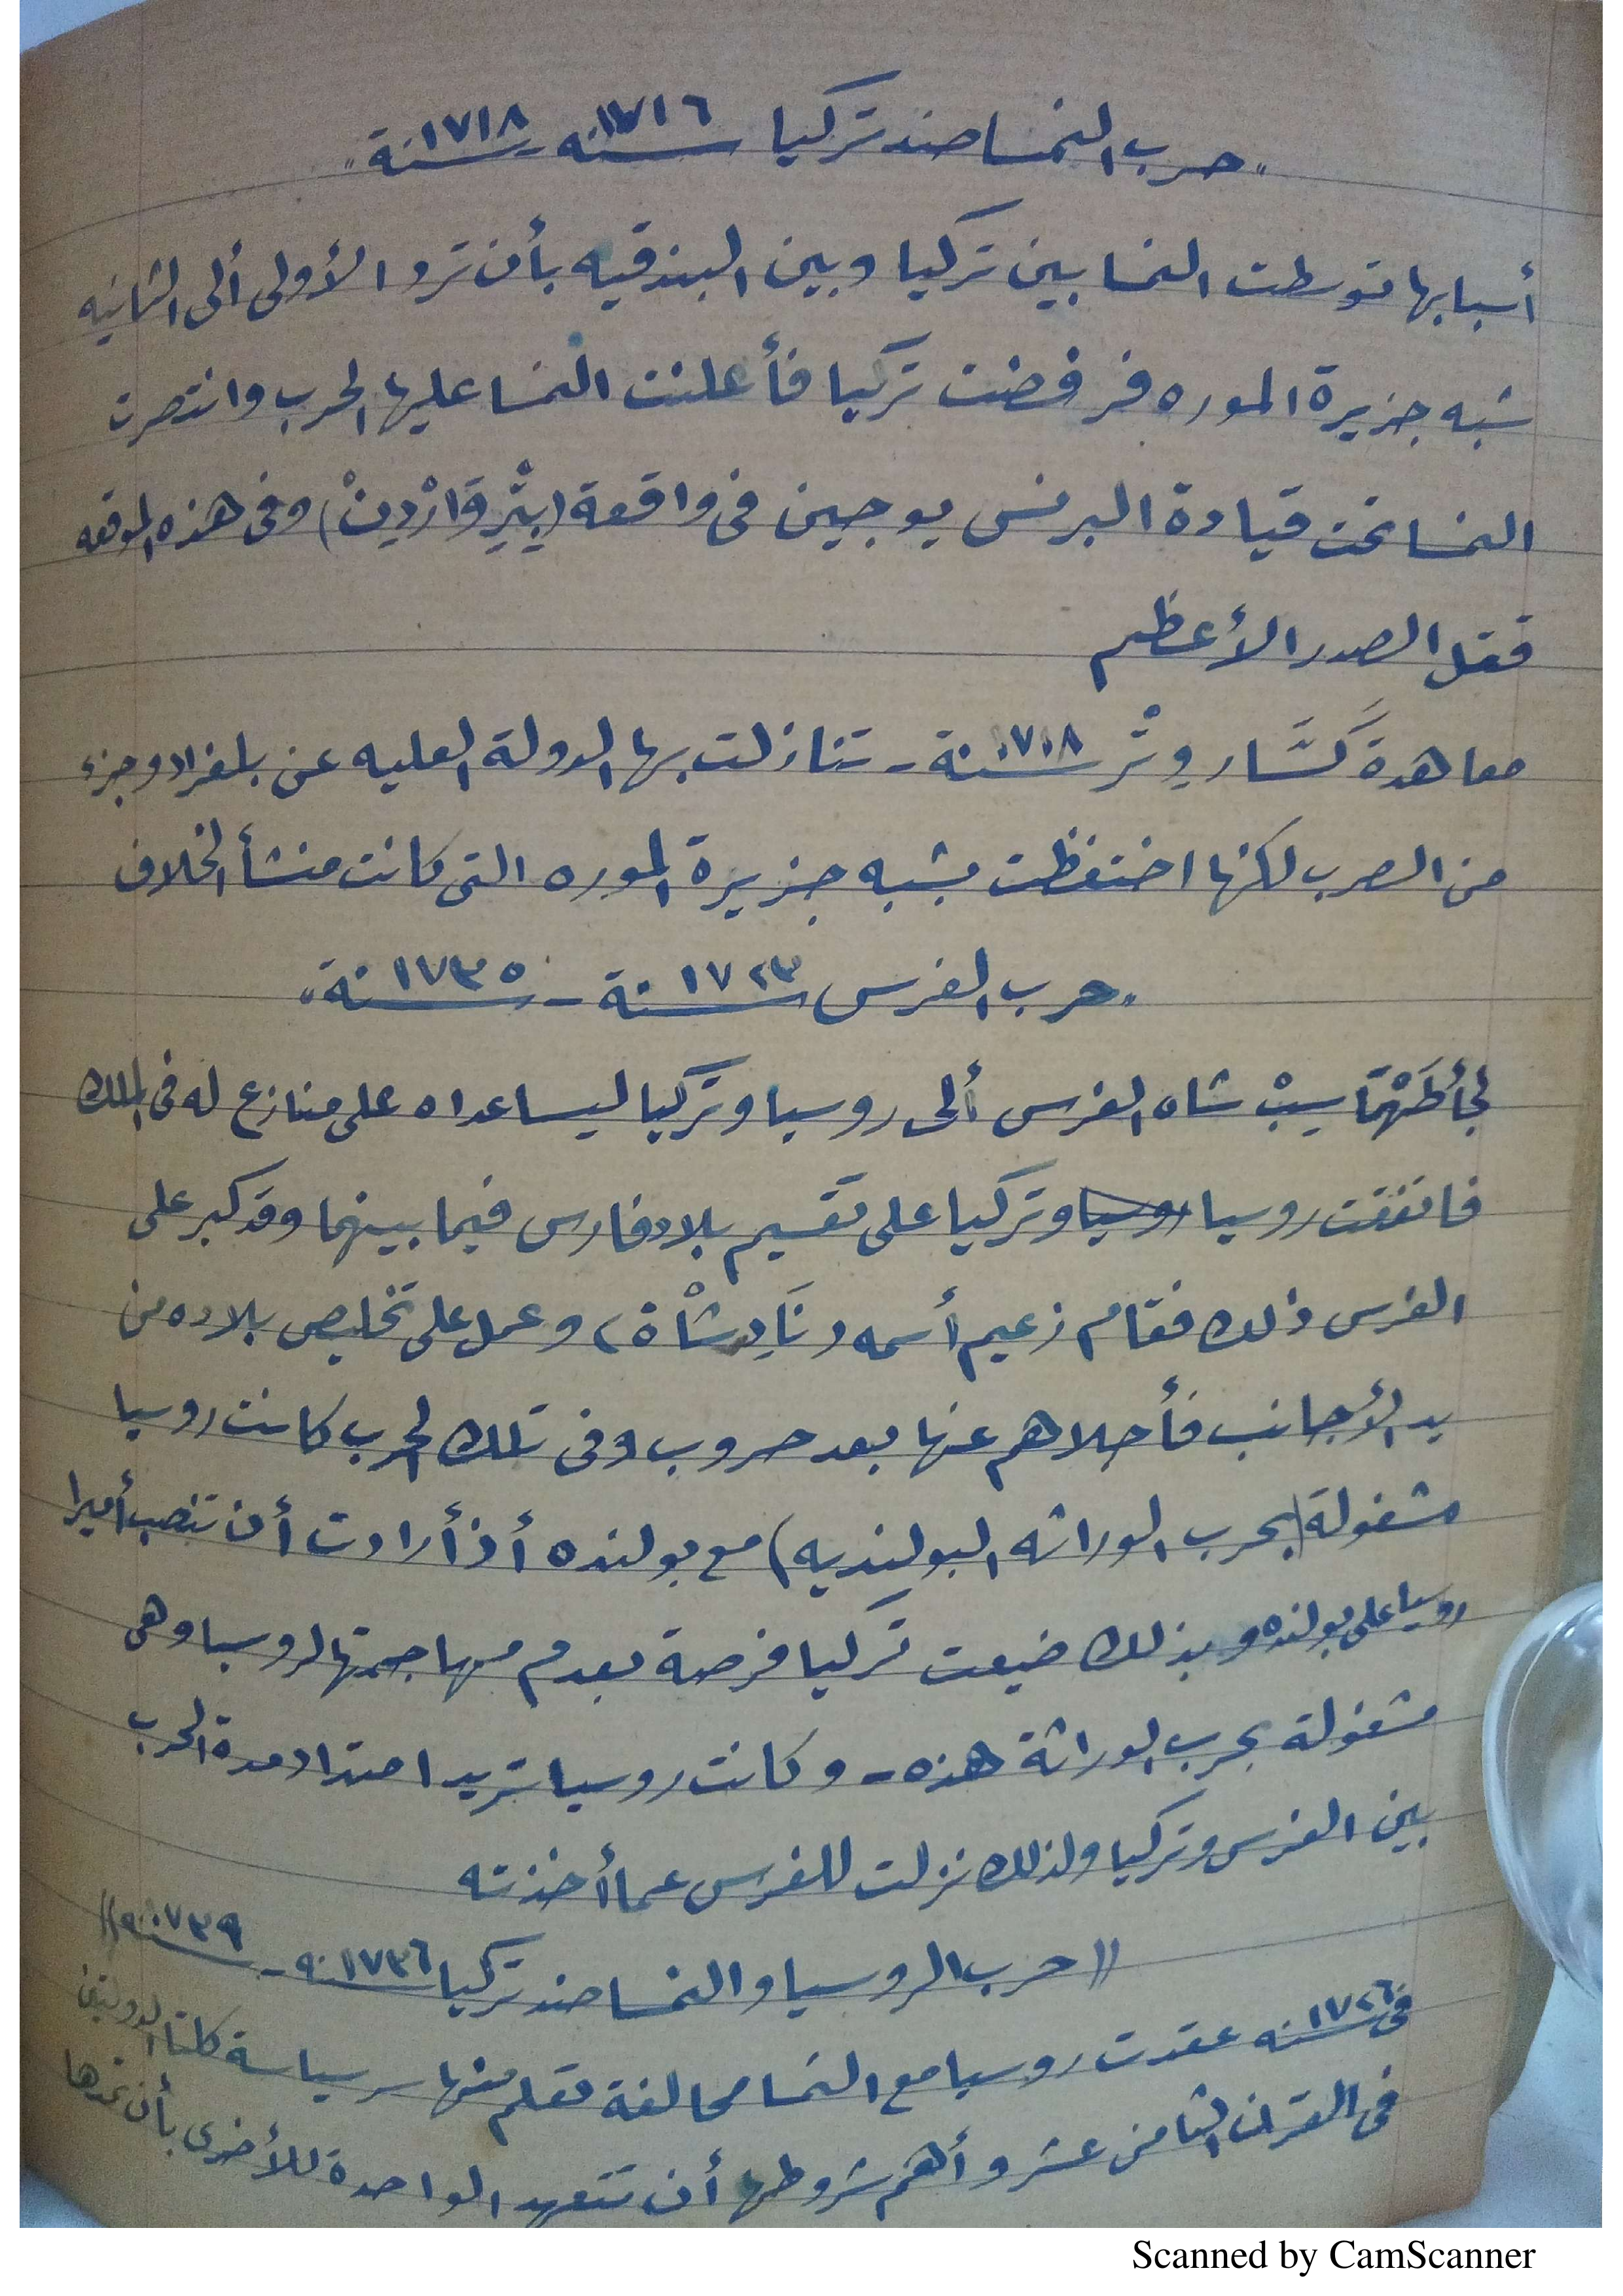 "حرب النمسا ضد تركيا سنه ١٧١٦ - سنة ١٧١٨"
أسبابها توسطت النمسا بين تركيا وبين البندقيه بأن ترد الأولى ألى الثانيه
شبه جزيرة الموره فرفضت تركيا فأعلنت النمسا عليها الحرب وانتصرت
النمسا تحت قيادة البرنس يوجين فى واقعة (بِتْرِوَارْدِينْ) وفى هذه الموقعه
قتل الصدر الأعظم
معاهدة كَسَّارِوِتْز سنة ١٧١٨ - تنازلت بها الدولة العليه عن بلغراد وجزء
من الصرب لكنها احتفظت بشبه جزيرة الموره التى كانت منشأ الخلاف
"حرب الفرس سنة ١٧٢٣ - سنة ١٧٣٥"
لجأ طَهْمَاسِبْ شاه الفرس ألى روسيا وتركيا ليساعداه على منازع له فى الملك
فاتفقت روسيا روسيا وتركيا على تقسيم بلاد فارس فيما بينهما وقد كبر على
الفرس ذلك فقام زعيم أسمه (نَادِرشْاة) وعمل على تخليص بلاده من
يد الأجانب فأجلاهم عنها بعد حروب وفى تلك الحرب كانت روسيا
مشغولة (بحرب الوراثه البولنديه) مع بولنده أذ أرادت أن تنصب أميرا
روسيا على بولنده وبذلك ضيعت تركيا فرصة بعدم مهاجمتها لروسيا وهى
مشغولة بحرب الوراثة هذه - وكانت روسيا تريد امتداد مدة الحرب
بين الفرس وتركيا ولذلك نزلت للفرس عما أخذته
((حرب الروسيا والنمسا ضد تركيا سنه ١٧٣٦ - سنه ١٧٣٩))
فى سنه ١٧٢٦ عقدت روسيا مع النمسا محالفة تعلم منها سر سياسة كلتا الدولتين
فى القرن الثامن عشر وأهم شروطها أن تتعهد الواحدة للأخرى بأن تمدها
Scanned by CamScanner